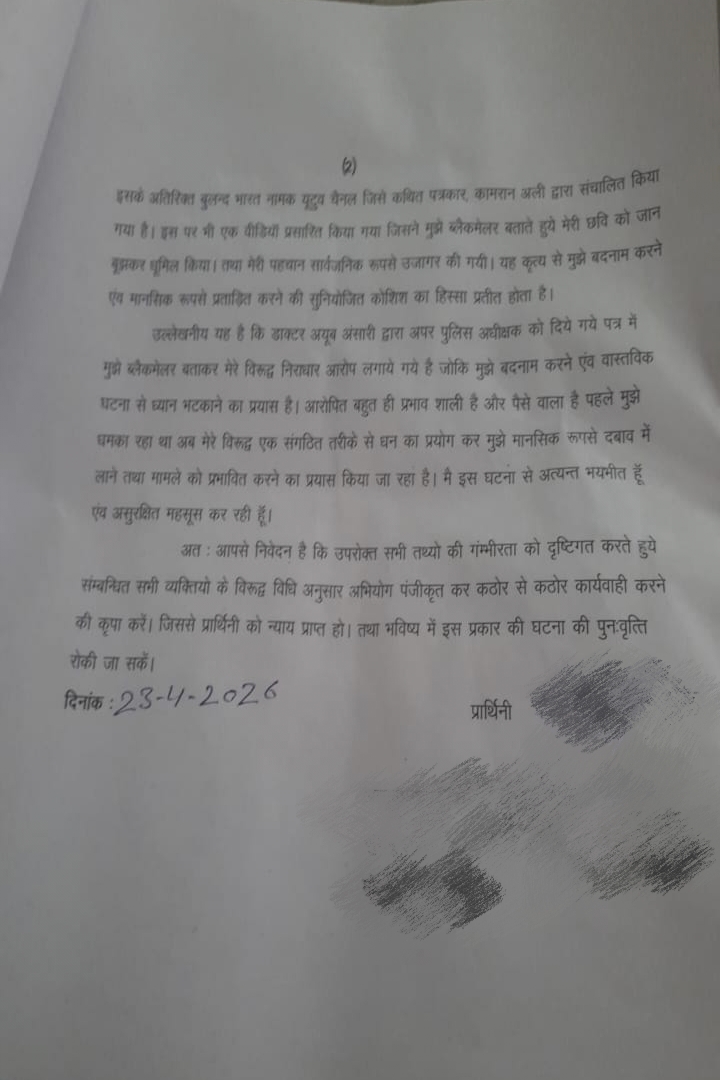 (2)
इसके अतिरिक्त बुलन्द भारत नामक यूटुव चैनल जिसे कथित पत्रकार, कामरान अली द्वारा संचालित किया
गया है। इस पर भी एक वीडियों प्रसारित किया गया जिसने मुझे ब्लैकमेलर बताते हुये मेरी छवि को जान
बूझकर धूमिल किया। तथा मेरी पहचान सार्वजनिक रूपसे उजागर की गयी। यह कृत्य से मुझे बदनाम करने
एंव मानसिक रूपसे प्रताड़ित करने की सुनियोजित कोशिश का हिस्सा प्रतीत होता है।
उल्लेखनीय यह है कि डाक्टर अयूब अंसारी द्वारा अपर पुलिस अधीक्षक को दिये गये पत्र में
मुझे ब्लैकमेलर बताकर मेरे विरूद्ध निराधार आरोप लगाये गये है जोकि मुझे बदनाम करने एंव वास्तविक
घटना से ध्यान भटकाने का प्रयास है। आरोपित बहुत ही प्रभाव शाली है और पैसे वाला है पहले मुझे
धमका रहा था अब मेरे विरूद्ध एक संगठित तरीके से धन का प्रयोग कर मुझे मानसिक रूपसे दबाव में
लाने तथा मामले को प्रभावित करने का प्रयास किया जा रहा है। मै इस घटना से अत्यन्त भयभीत हूँ
एंव असुरक्षित महसूस कर रही हूँ।
अत : आपसे निवेदन है कि उपरोक्त सभी तथ्यो की गंम्भीरता को दृष्टिगत करते हुये
संम्बन्धित सभी व्यक्तियो के विरूद्ध विधि अनुसार अभियोग पंजीकृत कर कठोर से कठोर कार्यवाही करने
की कृपा करें। जिससे प्रार्थिनी को न्याय प्राप्त हो। तथा भविष्य में इस प्रकार की घटना की पुनःवृत्ति
रोकी जा सकें।
दिनांक : 23-4-2026
प्रार्थिनी